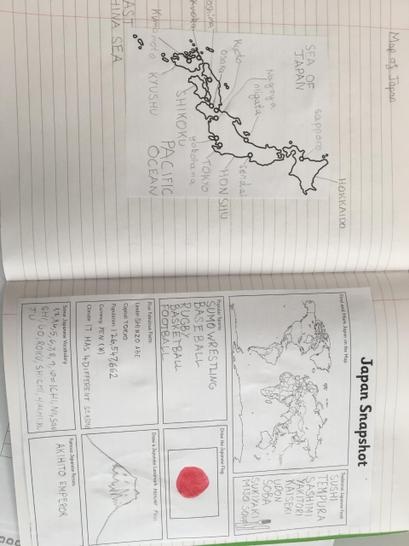 Map of Japan
SEA OF
JAPAN
sapporo
HOKKAIDO
niigata
Nagoya
Kyoto
osaka
sendai
HONSHU
TOKYO
yokohama
PACIFIC
OCEAN
SHIKOKU
KYUSHU
EAST
CHINA SEA
Japan Snapshot
Find and Mark Japan on the Map
Traditional Japanese Food
SUSHI
TEMPURA
SASHIMI
YAKITORI
KAISEKI
UDON
SOBA
SUKIYAKI
MISO SOUP
Popular Sports
SUMO WRESTLING
BASEBALL
RUGBY
BASKETBALL
FOOTBALL
Draw the Japanese Flag
Five Fabulous Facts
Leader: SHINZO ABE
Capital: TOKYO
Population: 126,547,662
Currency: YEN (¥)
Climate: IT HAS 4 DIFFERENT SEASONS
Draw a Japanese Landmark MOUNT FUJI
Some Japanese Vocabulary
Famous Japanese People
AKIHITO EMPEROR